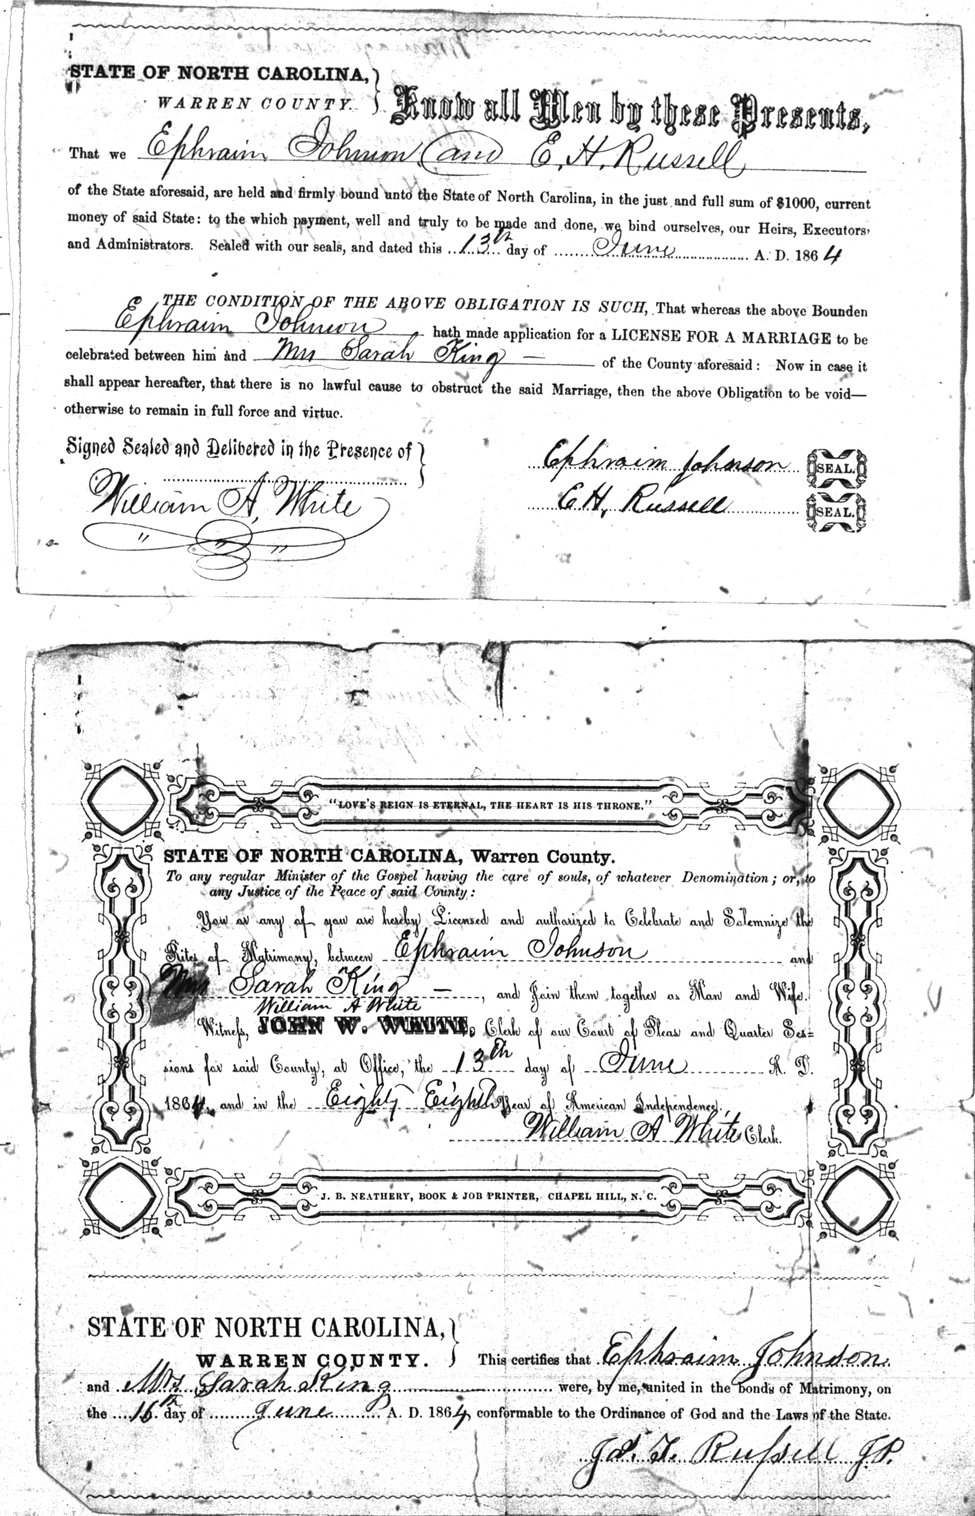 STATE OF NORTH CAROLINA,
WARREN COUNTY.
Know all Men by these Presents,
That we Ephraim Johnson and E. H. Russell
of the State aforesaid, are held and firmly bound unto the State of North Carolina, in the just and full sum of $1000, current
money of said State: to the which payment, well and truly to be made and done, we bind ourselves, our Heirs, Executors,
and Administrators. Sealed with our seals, and dated this 13th day of June A. D. 1864
THE CONDITION OF THE ABOVE OBLIGATION IS SUCH, That whereas the above Bounden
Ephraim Johnson hath made application for a LICENSE FOR A MARRIAGE to be
celebrated between him and Mrs Sarah King — of the County aforesaid: Now in case it
shall appear hereafter, that there is no lawful cause to obstruct the said Marriage, then the above Obligation to be void—
otherwise to remain in full force and virtue.
Signed Sealed and Delibered in the Presence of
William A. White
Ephraim Johnson SEAL.
E H, Russell SEAL.
"LOVE'S REIGN IS ETERNAL, THE HEART IS HIS THRONE."
STATE OF NORTH CAROLINA, Warren County.
To any regular Minister of the Gospel having the care of souls, of whatever Denomination; or, to
any Justice of the Peace of said County:
You or any of you are hereby Licensed and authorized to Celebrate and Solemnize the
Rites of Matrimony, between Ephraim Johnson and
Mrs Sarah King — , and Join them together as Man and Wife.
William A White
Witness, JOHN W. WHITE, Clerk of our Court of Pleas and Quarter Ses=
sions for said County, at Office, the 13th day of June A. D.
1864, and in the Eighty Eighth Year of American Independence.
William A White Clerk.
J. B. NEATHERY, BOOK & JOB PRINTER, CHAPEL HILL, N. C.
STATE OF NORTH CAROLINA,
WARREN COUNTY.
This certifies that Ephraim Johnson
and Mrs Sarah King were, by me, united in the bonds of Matrimony, on
the 16th day of June A. D. 1864, conformable to the Ordinance of God and the Laws of the State.
T. Russell JP.